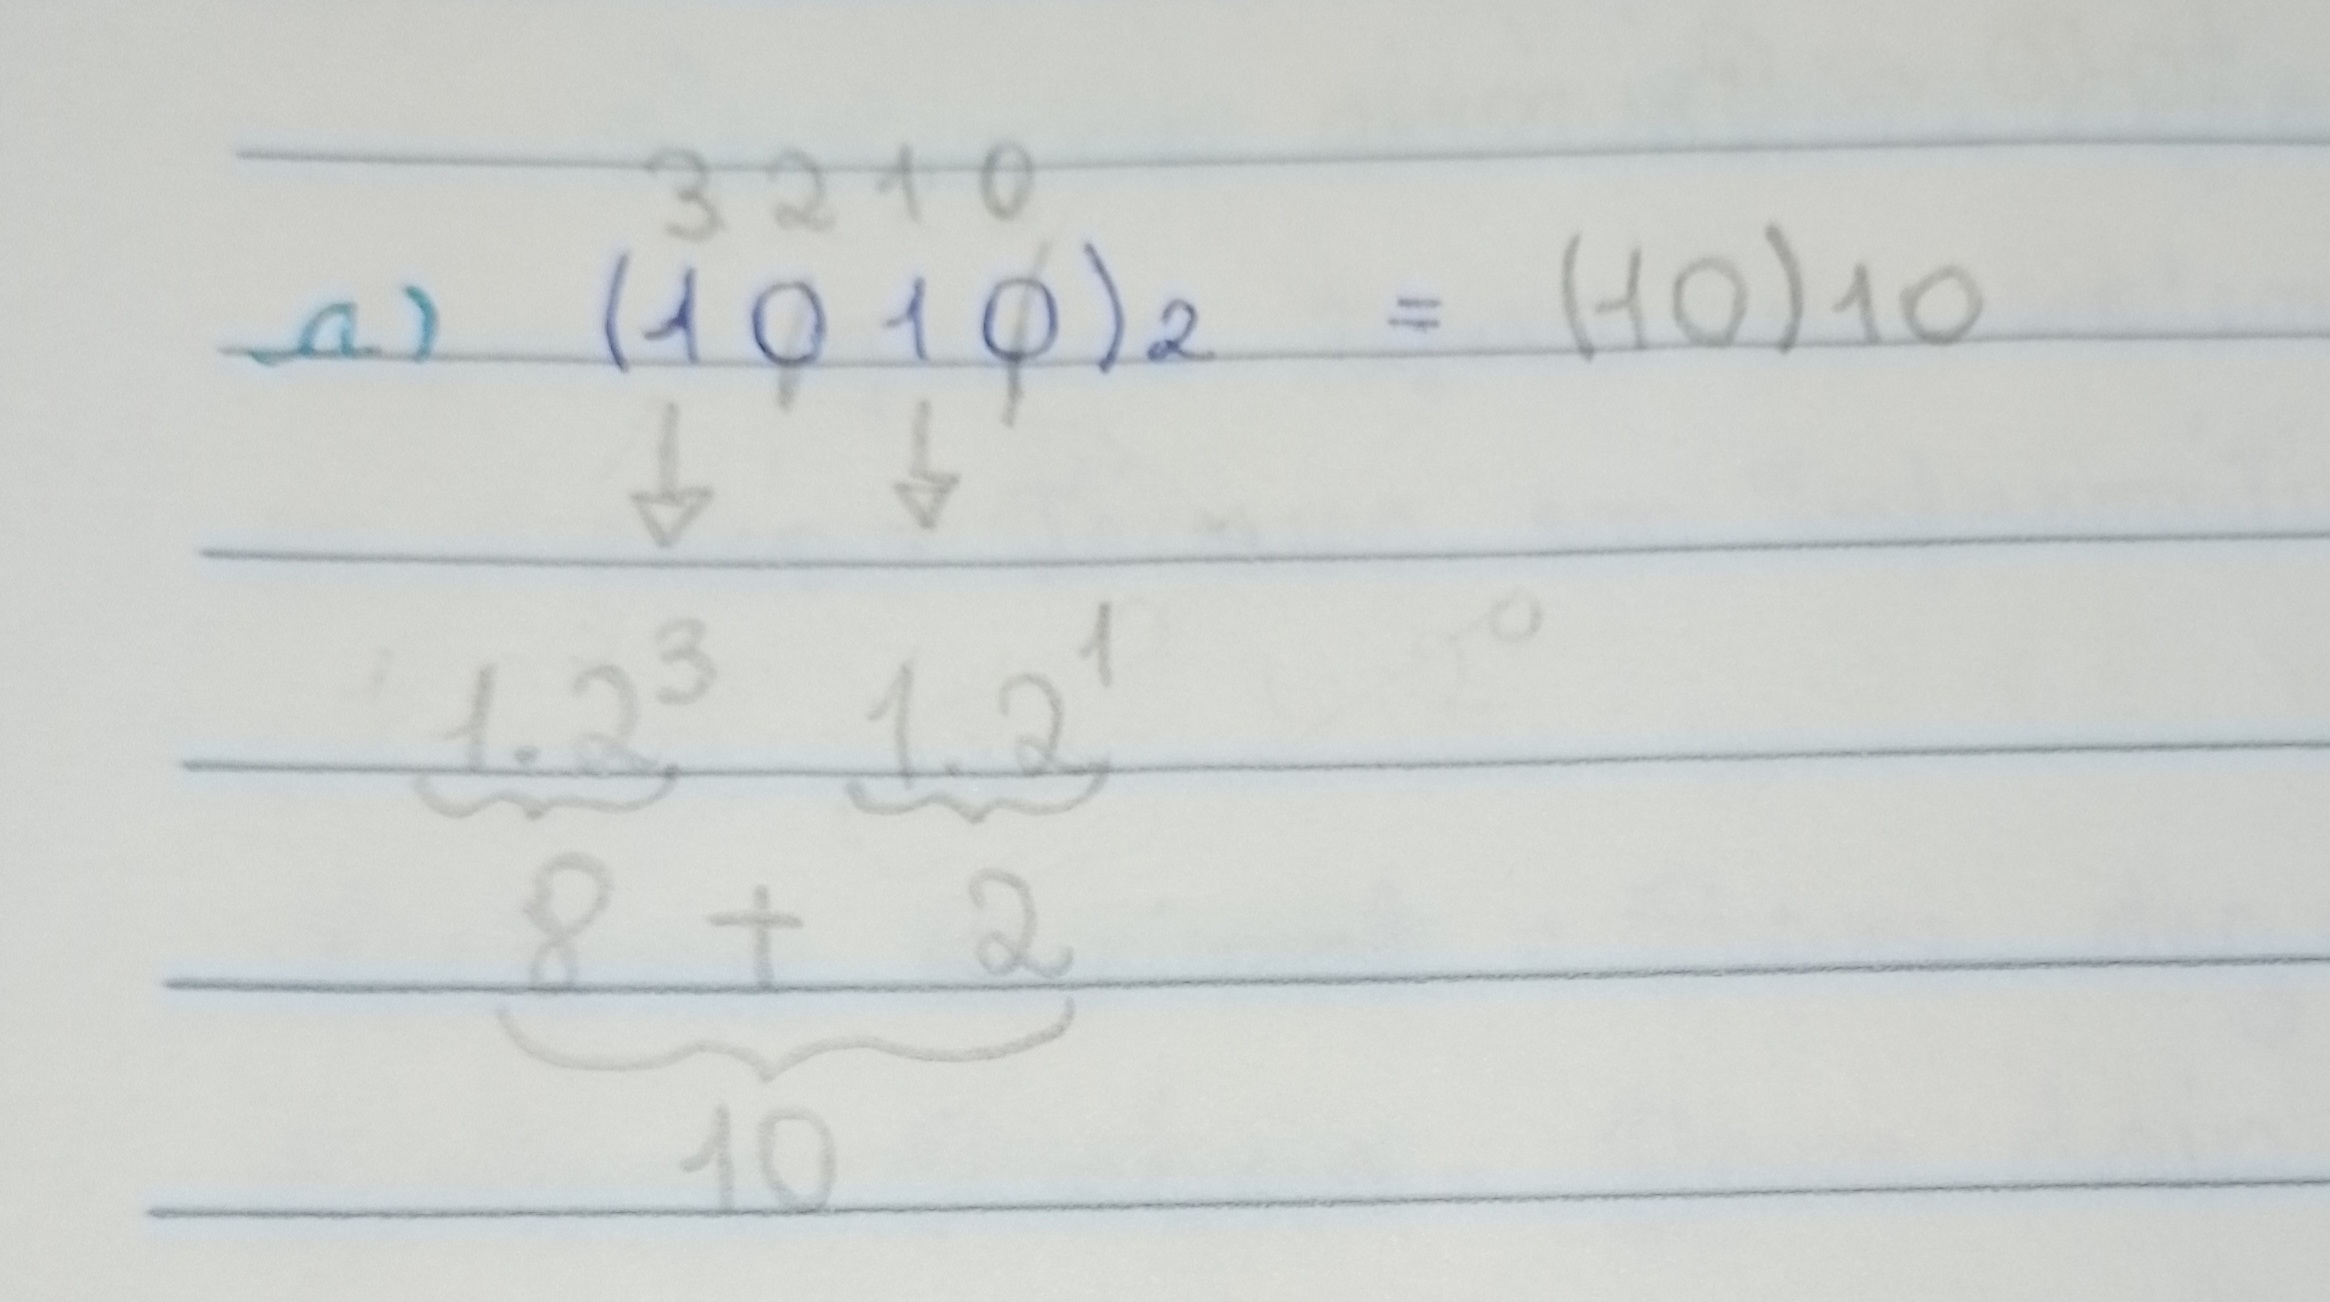 3 2 1 0
a) (1 0 1 0)2 = (10)10
1.2³ 1.2¹
8 + 2
10